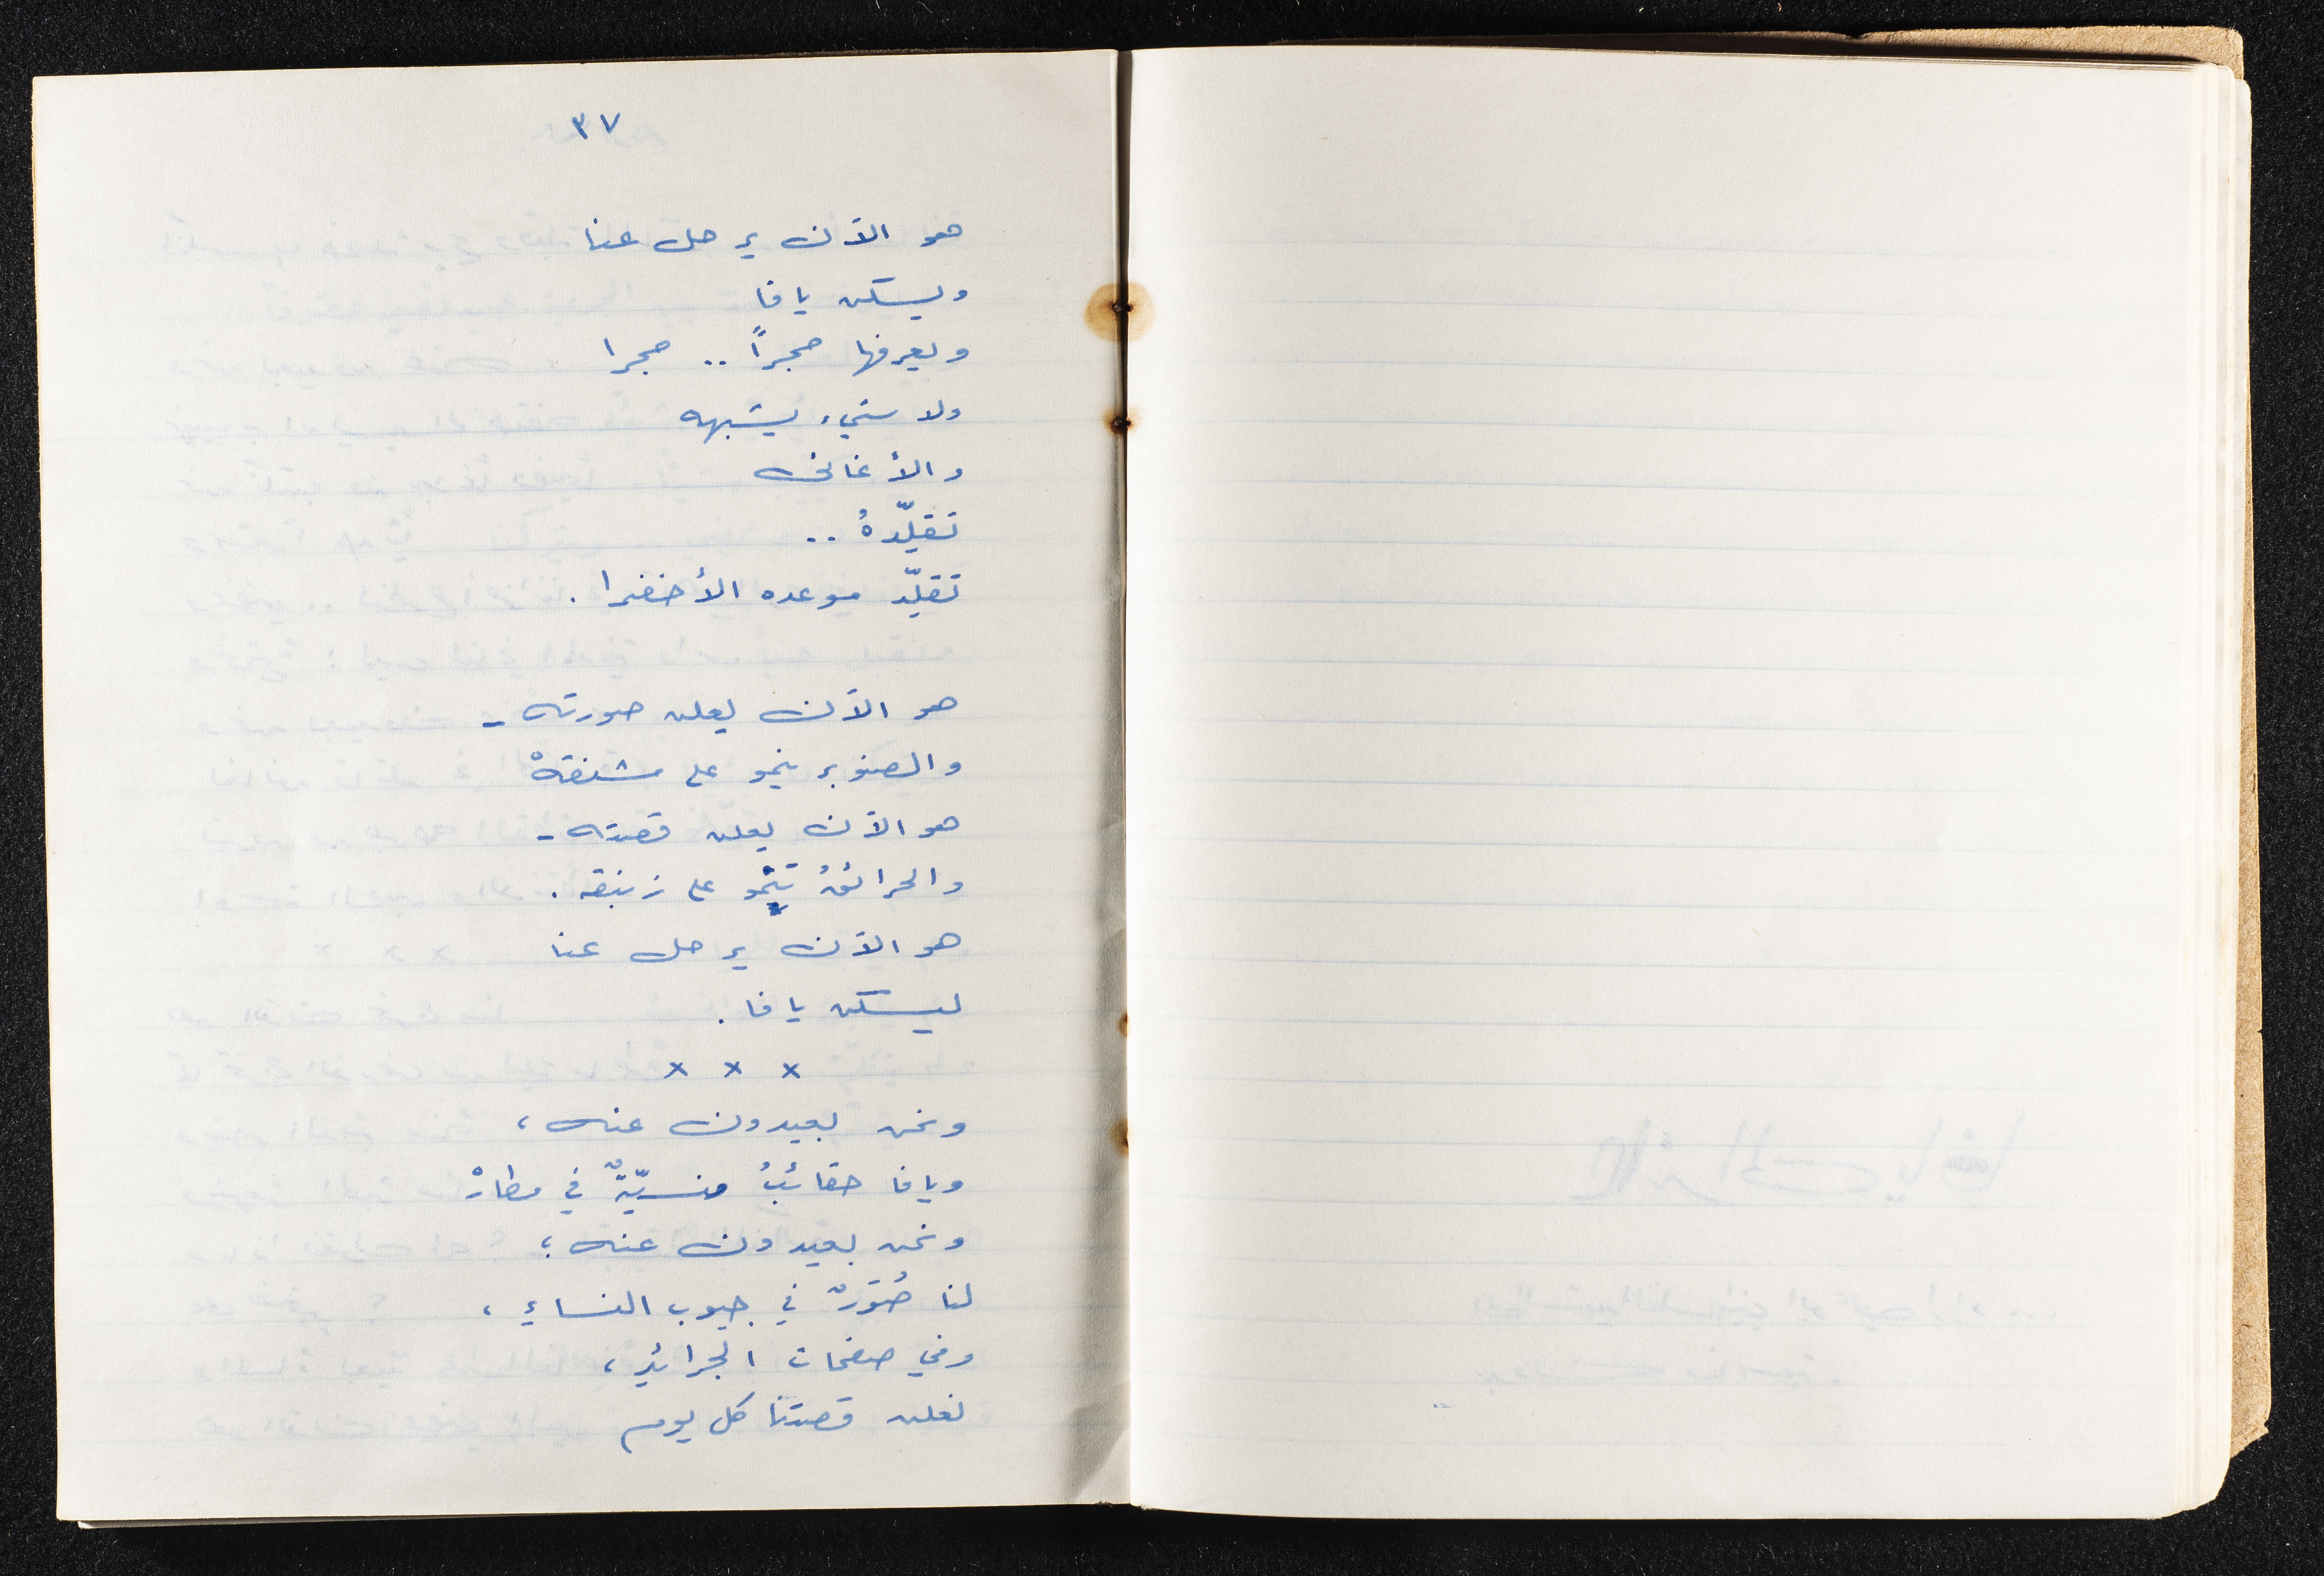 ٣٧
هو الآن يرحل عنا
ويسكن يافا
ويعرفها حجراً .. حجرا
ولا شيء يشبهه
والأغاني
تقلّدهُ ..
تقلّد موعده الأخضرا .
هو الآن يعلن صورته -
والصنوبر ينمو على مشنقهْ
هو الآن يعلن قصته -
والحرائقُ تنْمو على زنبقه .
هو الآن يرحل عنا
ليسكن يافا .
x x x
ونحن بعيدون عنه ،
ويافا حقائبُ منسيّةٌ في مطارْ
ونحن بعيدون عنه ؛
لنا صُوَرٌ في جيوب النساءِ ،
وفي صفحات الجرائدِ ،
نعلن قصتنا كل يوم